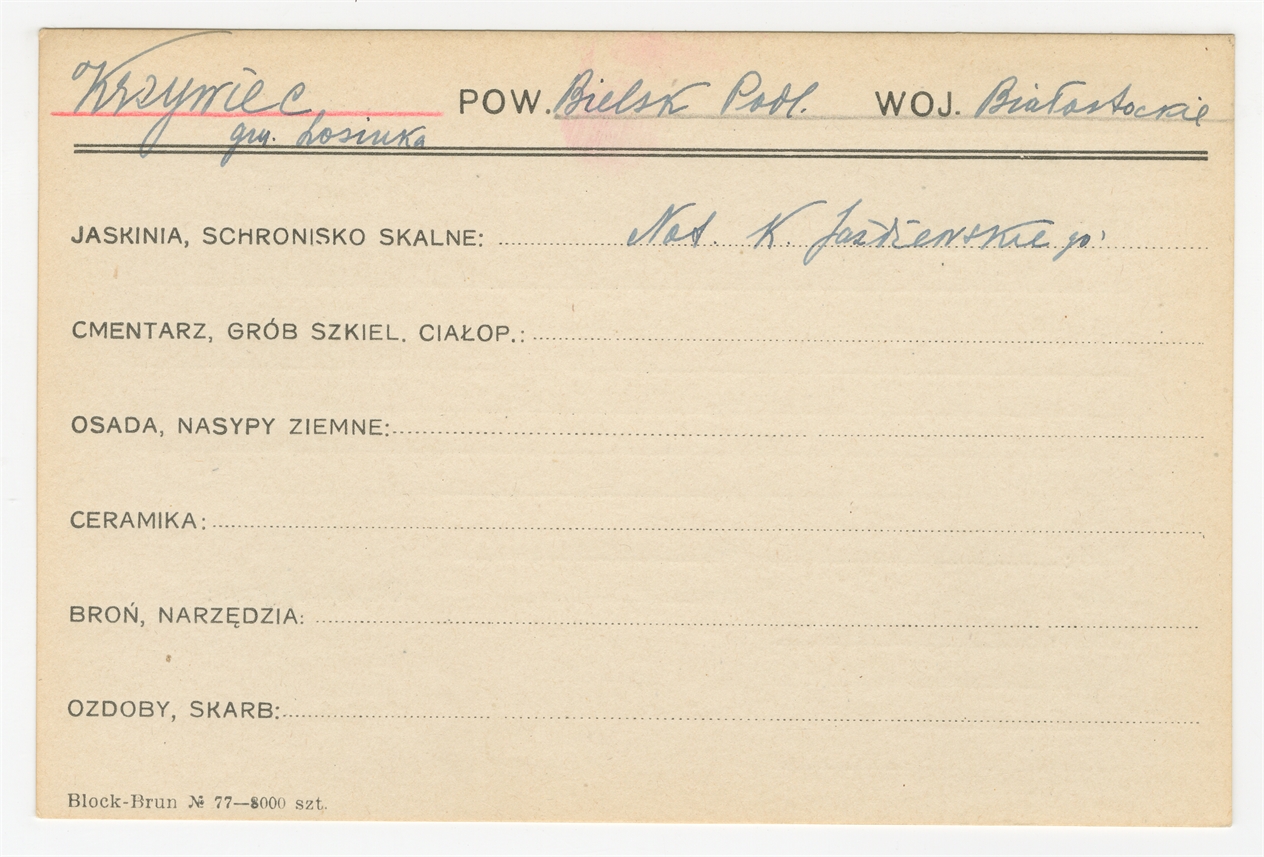 Krzywiec POW. Bielsk Podl. WOJ. Białostockie
gm. Łosinka
JASKINIA, SCHRONISKO SKALNE: Not. K. Jażdżewskiego
CMENTARZ, GRÓB SZKIEL. CIAŁOP.:
OSADA, NASYPY ZIEMNE:
CERAMIKA:
BROŃ, NARZĘDZIA:
OZDOBY, SKARB:
Block-Brun № 77—8000 szt.